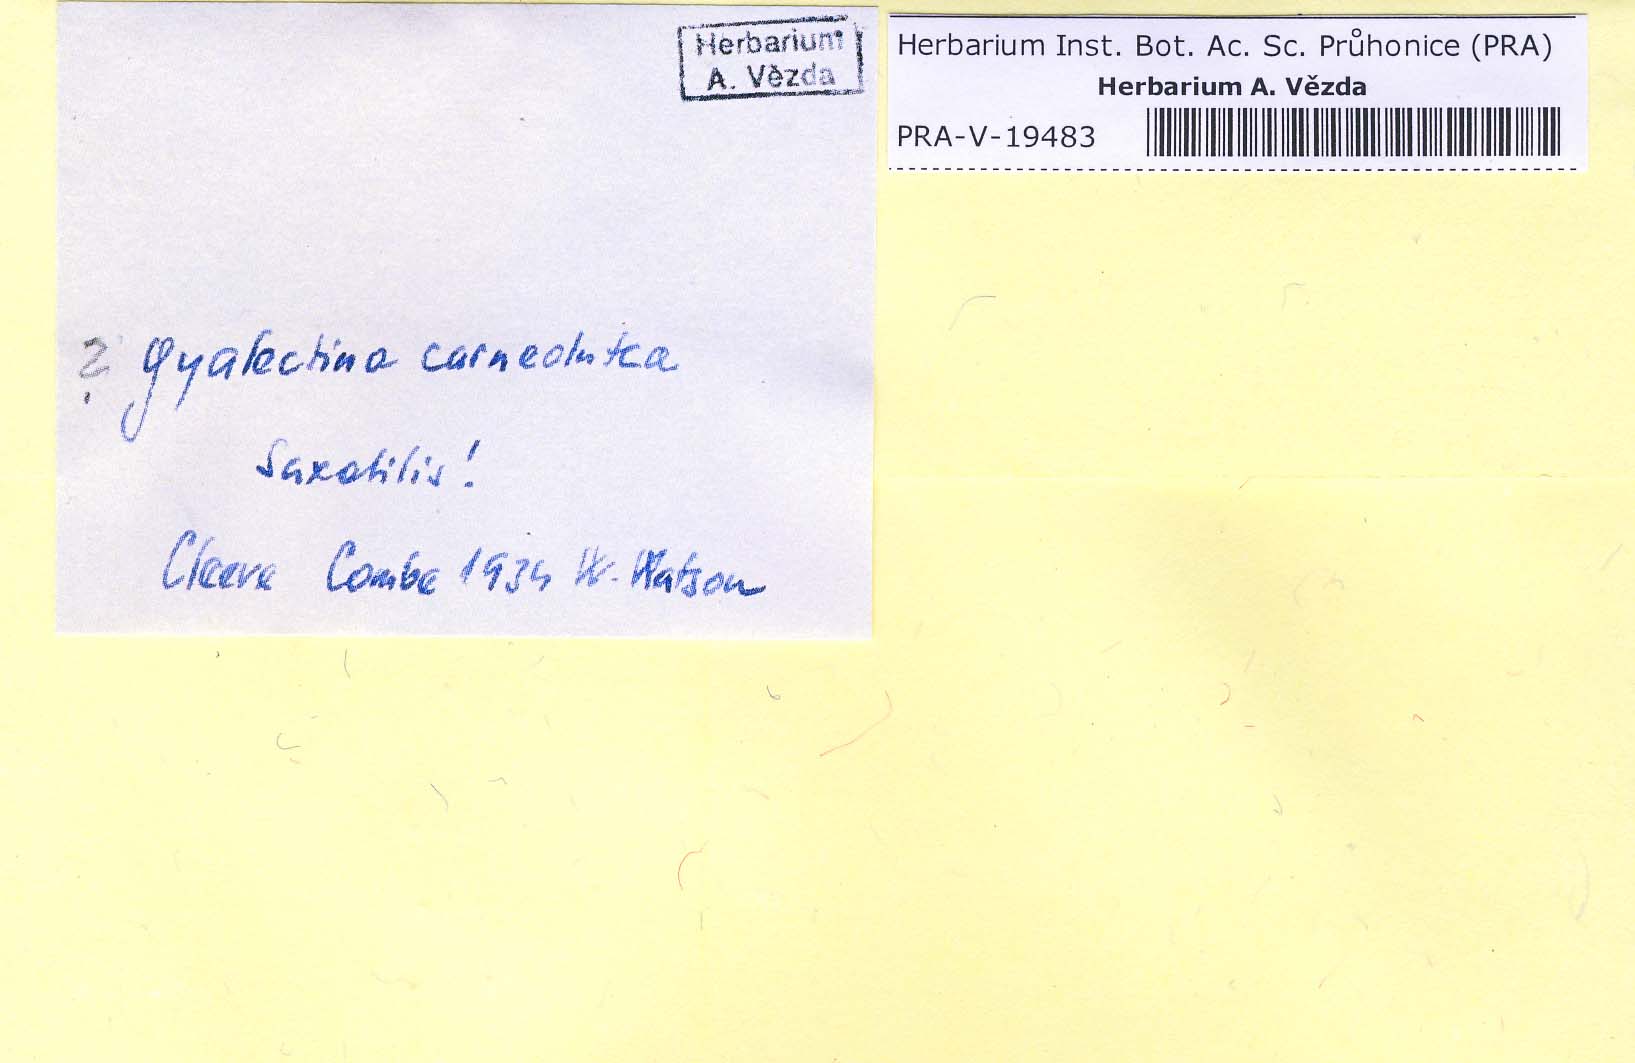 Herbarium
A. Vězda
Herbarium Inst. Bot. Ac. Sc. Průhonice (PRA)
Herbarium A. Vězda
PRA-V-19483
? Gyalectina carneolutea
saxatilis!
Cleeve Combe 1934 W. Watson